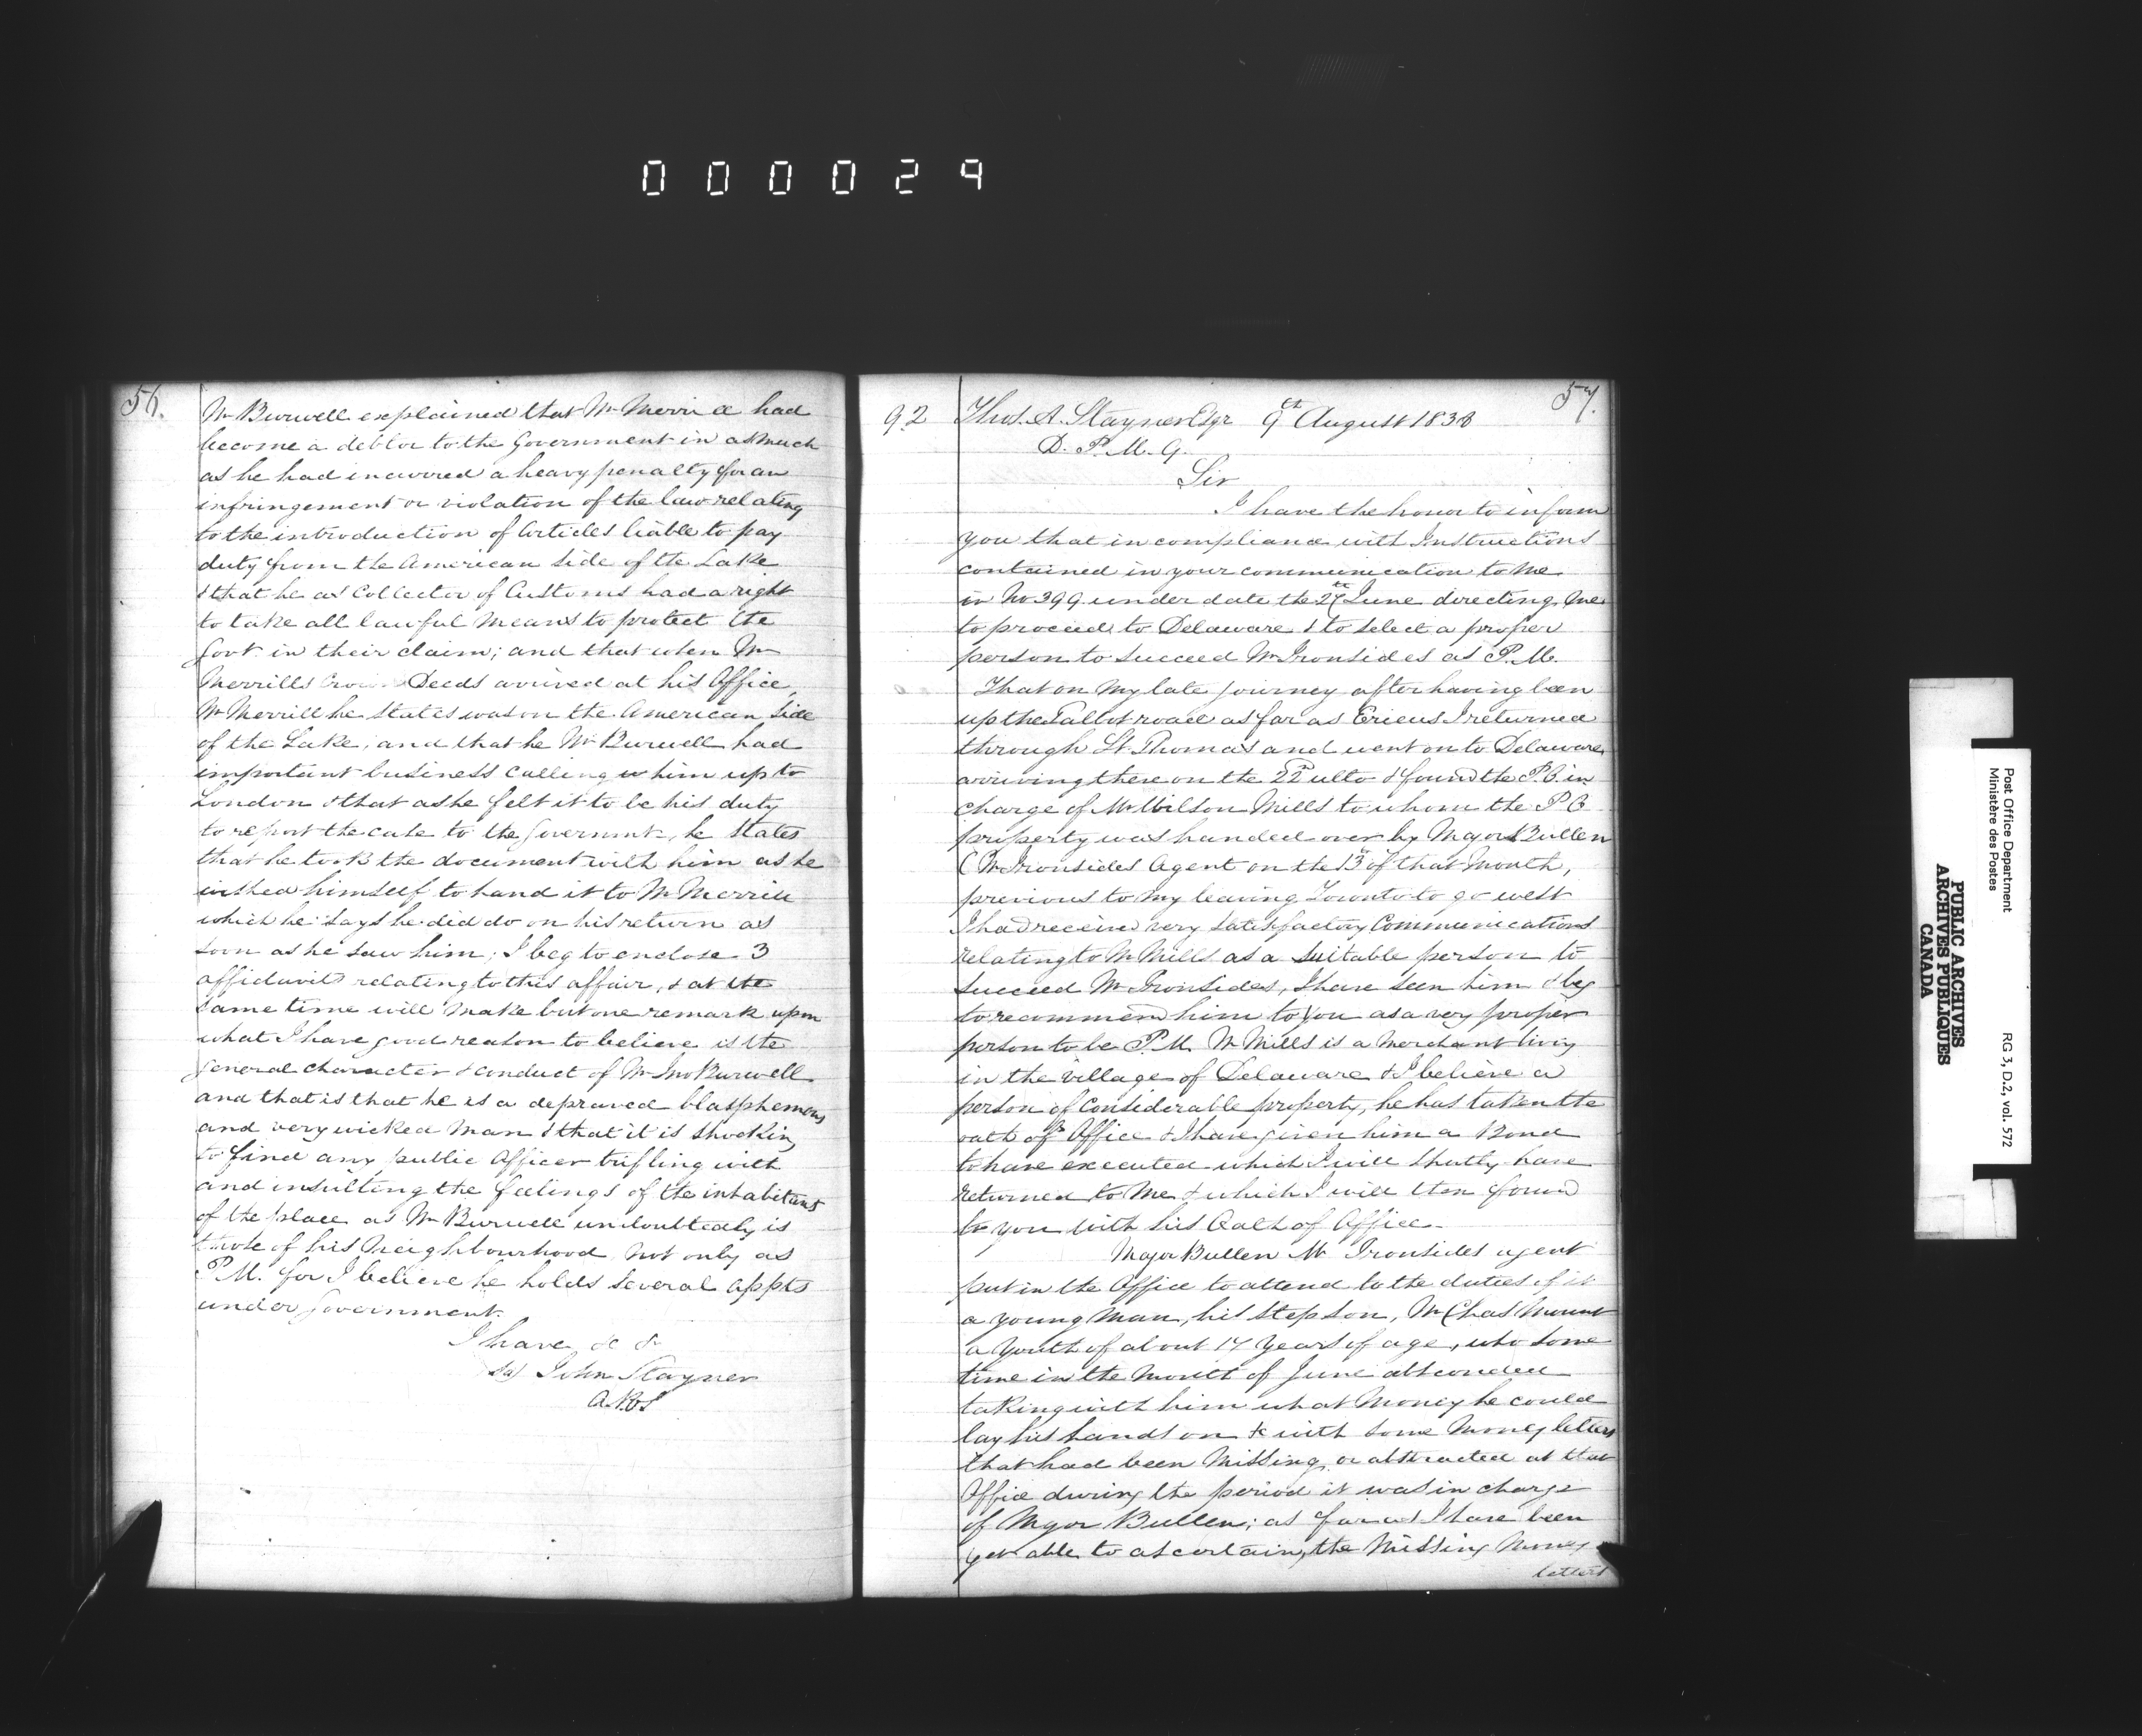 000029
56.
Mr Burwell explained that Mr Merrill had
become a debtor to the Government in as much
as he had incurred a heavy penalty for an
infringement or violation of the law relating
to the introduction of Articles liable to pay
duty from the American side of the Lake
& that he as Collector of Customs had a right
to take all lawful means to protect the
Govt. in their claim; and that when Mr
Merrills Deeds arrived at his Office,
Mr Merrill he states was on the American side
of the Lake, and that he Mr Burwell had
important business calling him up to
London & that as he felt it to be his duty
to report the case to the Governmt, he states
that he took the document with him as he
wished himself to hand it to Mr Merrill
which he says he did do on his return as
soon as he saw him; I beg to enclose 3
affidavits relating to this affair, & at the
same time will make but one remark upon
what I have good reason to believe is the
general character & conduct of Mr Jno Burwell
and that is that he is a depraved blasphemous
and very wicked man & that it is shocking
to find any public Officer trifling with
and insulting the feelings of the inhabitants
of the place as Mr Burwell undoubtedly is
those of his Neighbourhood, not only as
P.M. for I believe he holds several appts
under Government.
I have &c &c
(sd) John Stayner
57.
92 Thos. A. Stayner Esqr 9th August 1838
D. P. M. G.
Sir
I have the honor to inform
you that in compliance with Instructions
contained in your communication to me
in No 399 under date the 27th June directing me
to proceed to Delaware & to select a proper
person to succeed Mr Ironsides as P.M.
That on my late journey after having been
up the Talbot road as far as Erieus I returned
through St. Thomas and went on to Delaware
arriving there on the 22d ulto & found the P.O. in
charge of Mr Wilson Mills to whom the P O
property was handed over by Major Bullen
(Mr Ironsides Agent on the 13th of that month,
previous to my leaving Toronto to go west
I had received very satisfactory Communications
relating to Mr Mills as a suitable person to
succeed Mr Ironsides, I have seen him & beg
to recommend him to you as a very proper
person to be P.M. Mr Mills is a Merchant living
in the village of Delaware & I believe a
person of considerable property, he has taken the
oath of Office & I have given him a Bond
to have executed which I will shortly have
returned to me & which I will then forwd
to you with his Oath of Office.
Major Bullen Mr Ironsides agent
put in the Office to attend to the duties of it
a young man, his step son, Mr Chas Mount
a youth of about 17 years of age, who some
time in the month of June absconded
taking with him what money he could
lay his hands on & with some money letters
that had been missing or abstracted at that
Office during the period it was in charge
of Major Bullen; as far as I have been
yet able to ascertain, the missing money
letters
Post Office Department
Ministère des Postes
RG 3, D.2, vol. 572
PUBLIC ARCHIVES
ARCHIVES PUBLIQUES
CANADA